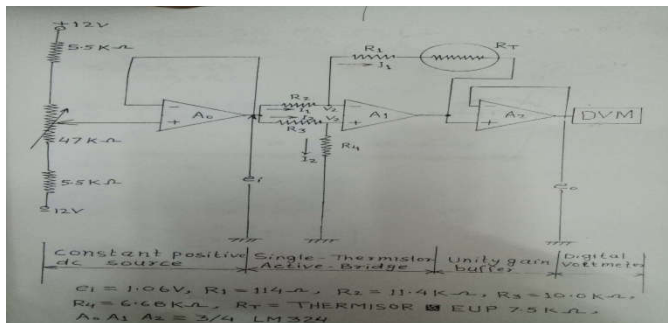 +12V
5.5K Ω
47K Ω
5.5K Ω
-12V
A₀
R₂
I₁
V₂
V₂
R₃
I₂
R₄
eᵢ
R₁
I₁
R_T
A₁
A₂
DVM
e₀
Constant positive dc source
Single-Thermistor Active-Bridge
Unity gain buffer
Digital Voltmeter
eᵢ = 1.06V, R₁ = 114Ω, R₂ = 11.4KΩ, R₃ = 10.0KΩ,
R₄ = 6.68KΩ, R_T = THERMISOR EUP 7.5KΩ,
A₀ A₁ A₂ = 3/4 LM324